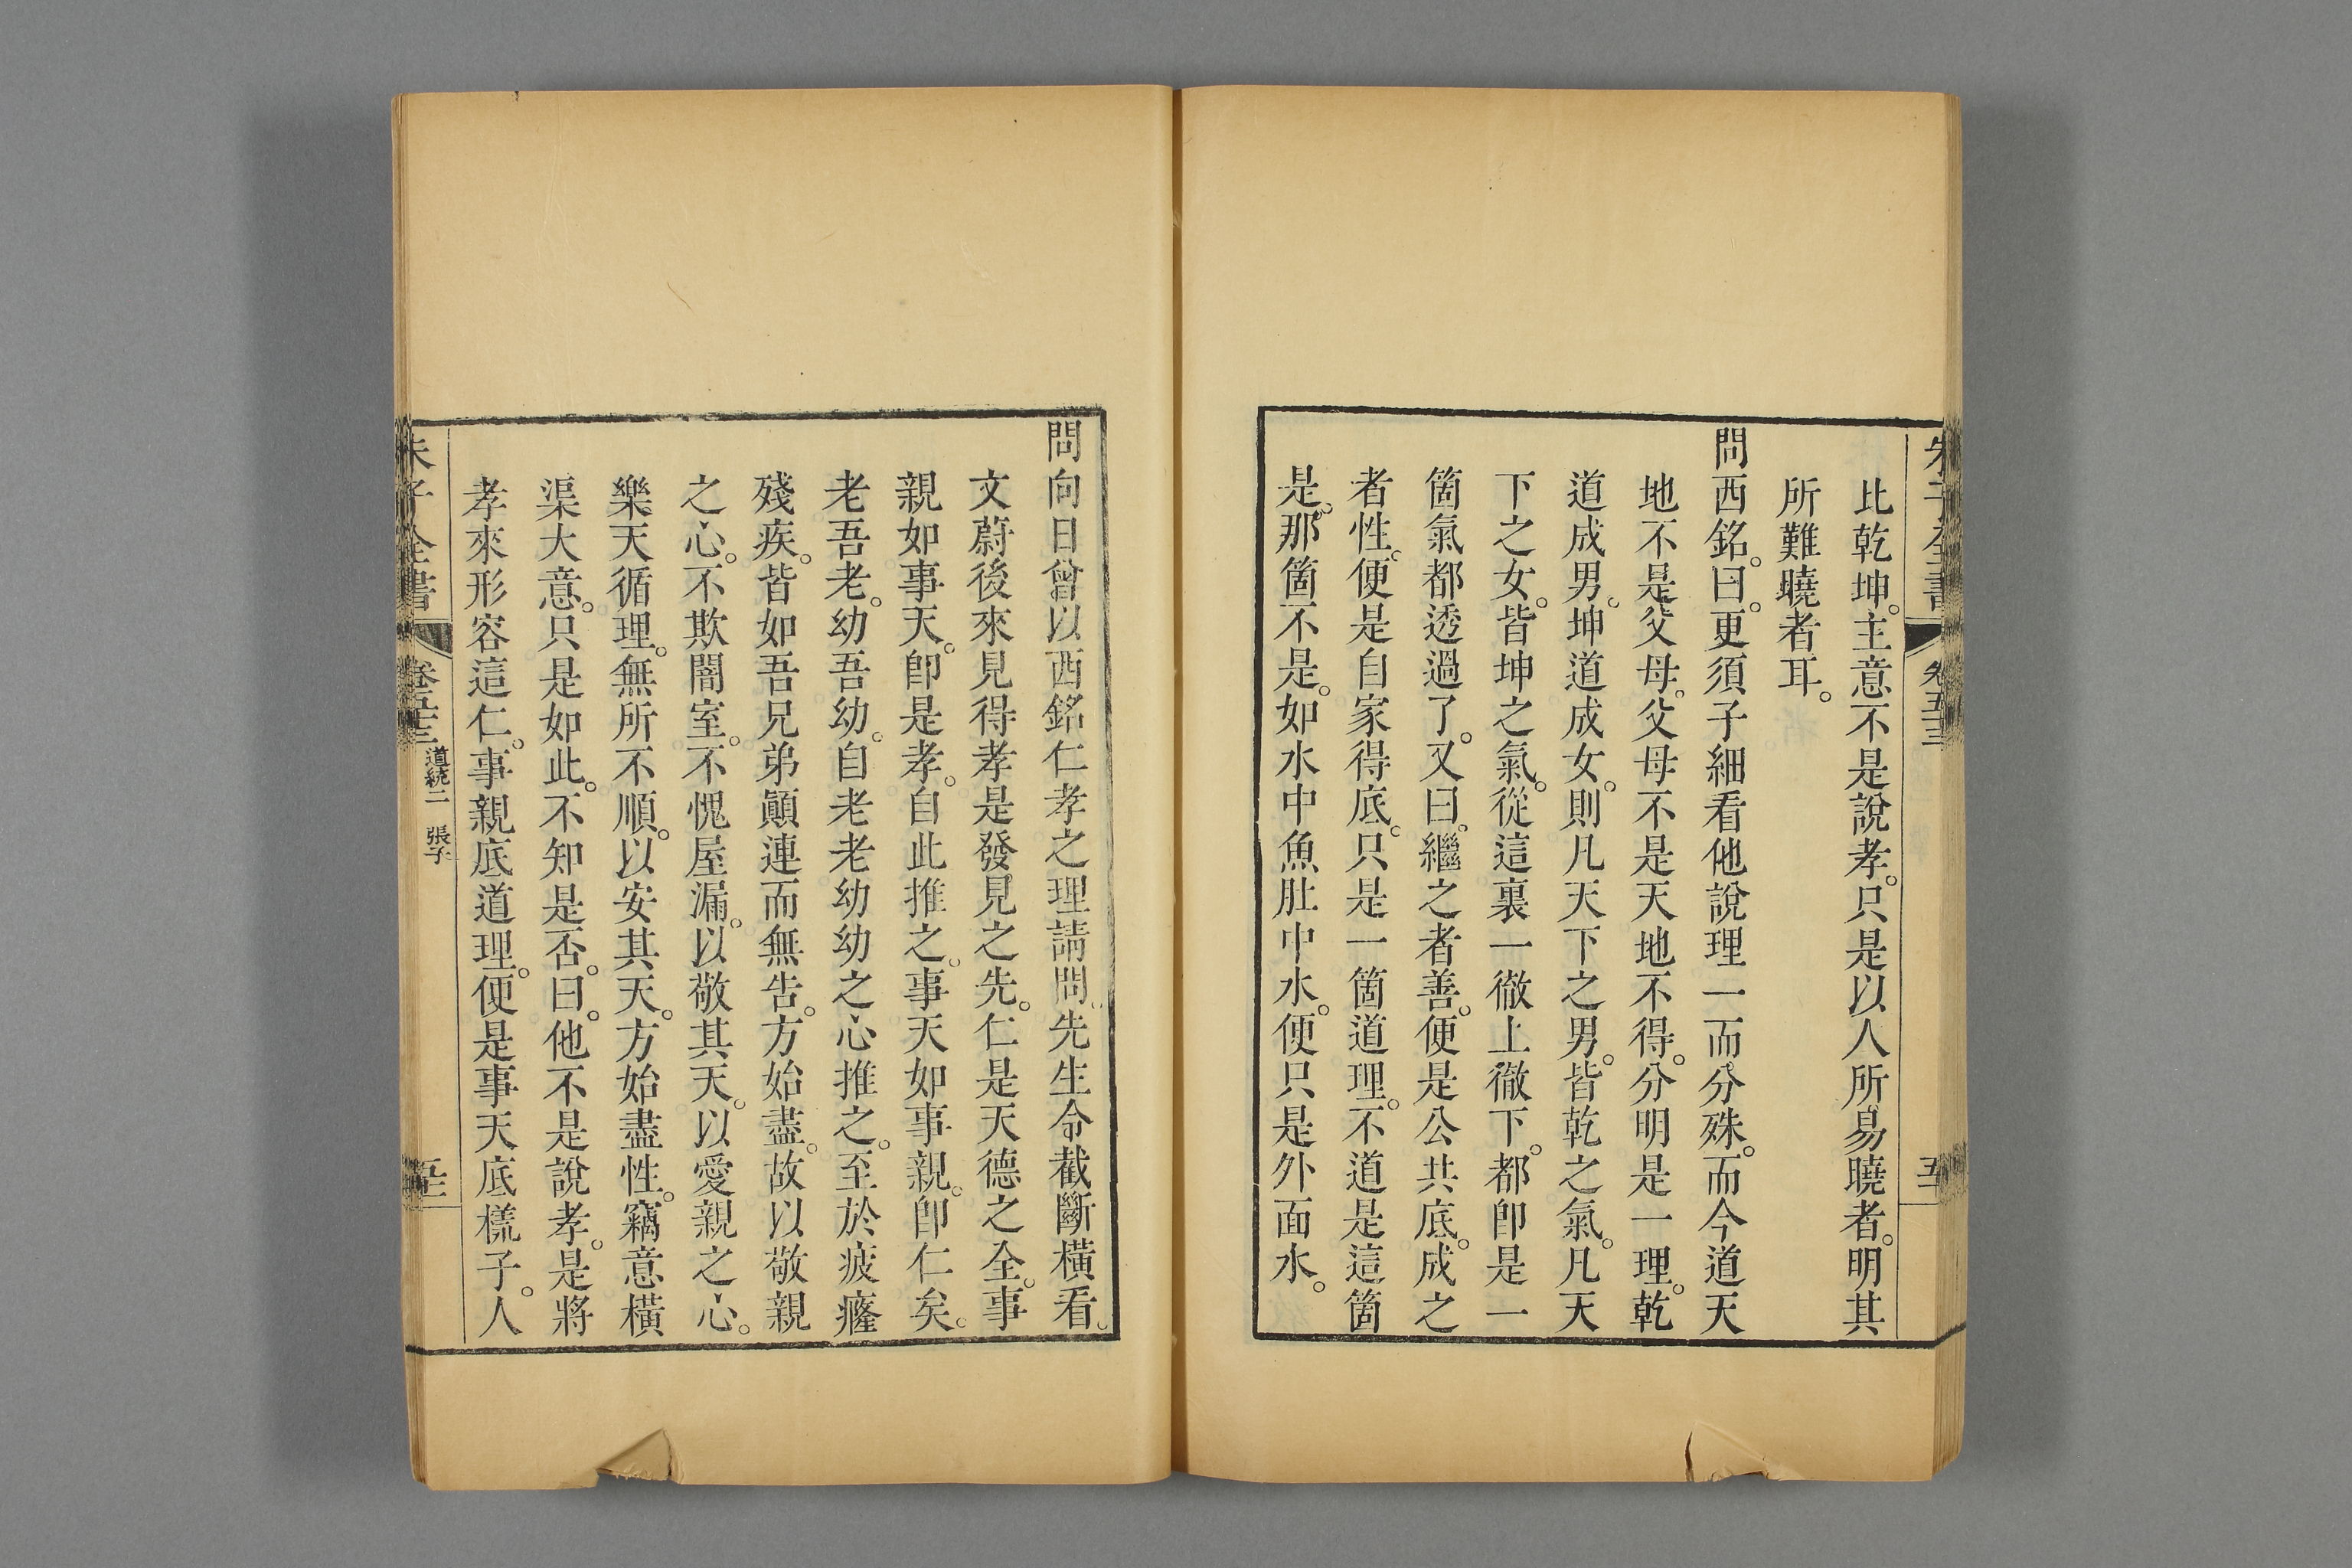 朱子全書 卷五十三 五十二
比乾坤。主意不是說孝。只是以人所易曉者。明其
所難曉者耳。
問西銘。曰。更須子細看他說理一而分殊。而今道天
地不是父母。父母不是天地不得。分明是一理。乾
道成男。坤道成女。則凡天下之男。皆乾之氣。凡天
下之女。皆坤之氣。從這裏一徹上徹下。都卽是一
箇氣都透過了。又曰。繼之者善。便是公共底。成之
者性。便是自家得底。只是一箇道理。不道是這箇
是。那箇不是。如水中魚肚中水。便只是外面水。
問向日曾以西銘仁孝之理請問。先生令截斷橫看。
文蔚後來見得孝是發見之先。仁是天德之全。事
親如事天。卽是孝。自此推之。事天如事親。卽仁矣。
老吾老。幼吾幼。自老老幼幼之心推之。至於疲癃
殘疾。皆如吾兄弟顚連而無告。方始盡。故以敬親
之心。不欺闇室。不愧屋漏。以敬其天。以愛親之心。
樂天循理。無所不順。以安其天。方始盡性。竊意橫
渠大意。只是如此。不知是否。曰。他不是說孝。是將
孝來形容這仁。事親底道理。便是事天底樣子。人
朱子全書 道統二 張子